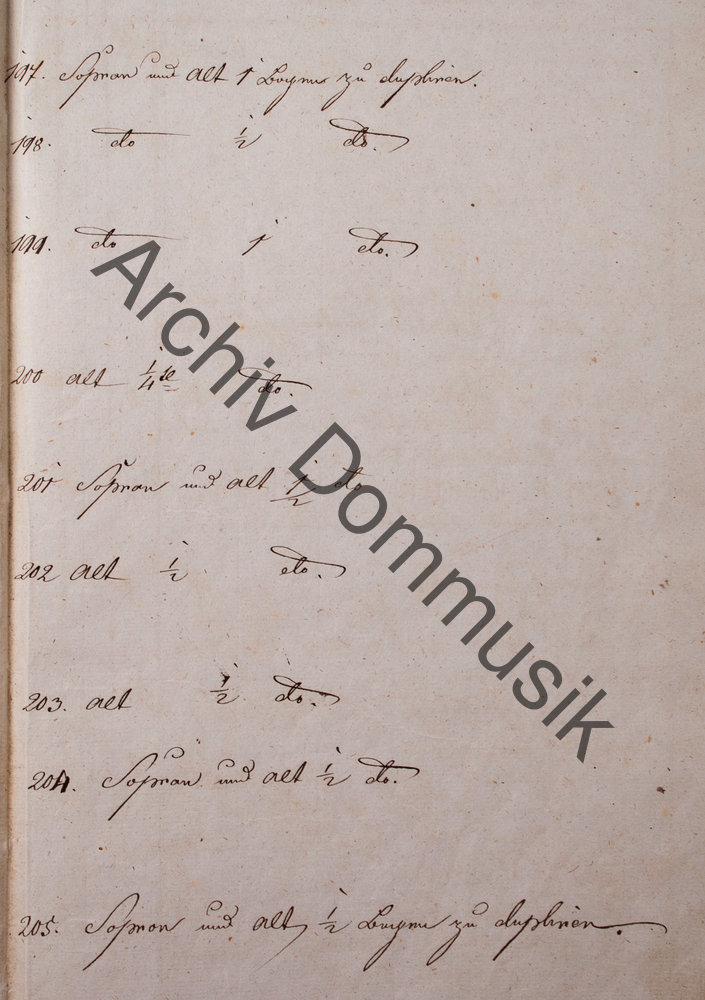 197. Sopran und alt 1 Bogen zu dupliren.
198. do ½ do.
199. do 1 do.
200 alt ¼ do.
201 Sopran und alt ½ do
202 alt ½ do.
203. alt ½ do.
204. Sopran und alt ½ do.
205. Sopran und alt ½ Bogen zu dupliren.
Archiv Dommusik